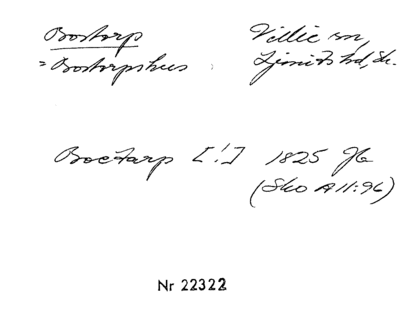 Bostorp Villie sn,
= Bostorpshus Ljunits hd, Sk.
Boctarp [!] 1825 Jb
(Sko A 11:96)
Nr 22322